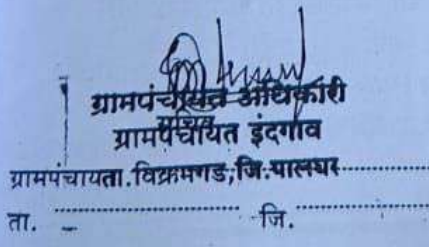 ग्रामपंचायत अधिकारी
सचिव
ग्रामपंचायत इंदगाव
ग्रामपंचायता.विक्रमगड,जि.पालघर
ता. जि.